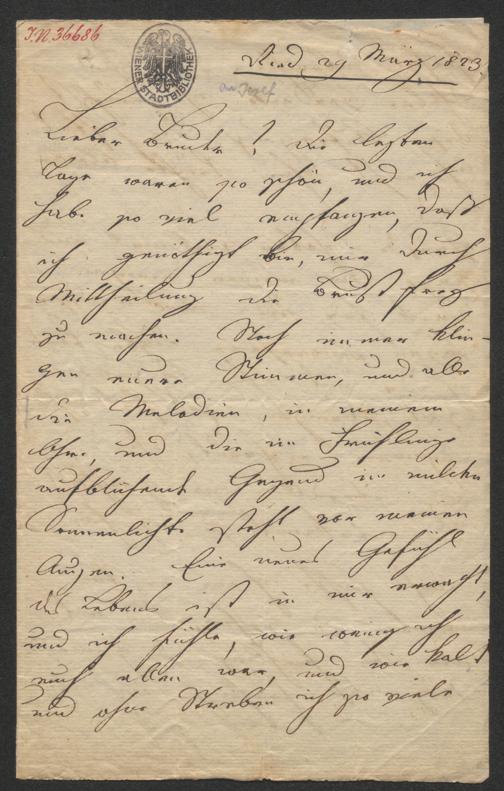 I.N. 36686
WIENER STADTBIBLIOTHEK
Ried 29 März 1823
an Josef
Lieber Bruder! Die letzten
Tage waren so schön, und ich
habe so viel empfangen, daß
ich genöthigt bin, mir durch
Mittheilung die Brust frey
zu machen. Noch immer klin-
gen eure Stimmen, und alle
die Melodien, in meinem
Ohr, und die im Frühlinge
aufblühende Gegend im milden
Sonnenlichte steht vor meinen
Augen. Ein neues Gefühl
des Lebens ist in mir erwacht,
und ich fühle, wie wenig ich
euch allen war, und wie kalt
und ohne Streben ich so viele